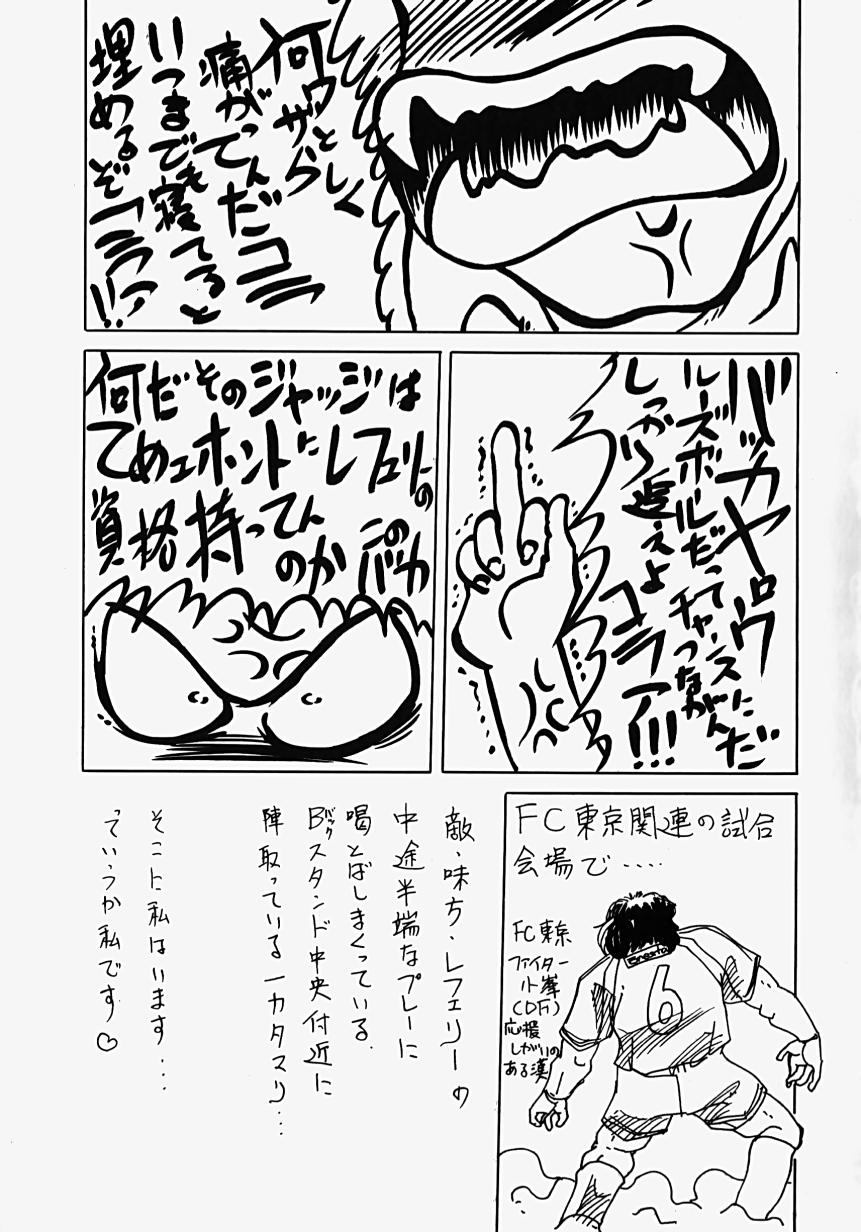 何ウザらしく
痛がってんだコラ
いつまでも寝てると
埋めるぞコラァ!!
バッカヤロウ
ルーズボールだってチャンスにつながんだ
しっかり追えよ
コラァ!!!
何だそのジャッジは
てめェホントにレフェリーの
資格持ってん
のか このバカ
FC東京関連の試合
会場で・・・・
FC東京
ファイター
小峯
(DF)
応援
しがいの
ある漢
6
敵・味方・レフェリーの
中途半端なプレーに
喝とばしまくっている
Bバックスタンド中央付近に
陣取っている一カタマリ・・・
そこに私はいます・・・
っていうか私です♡